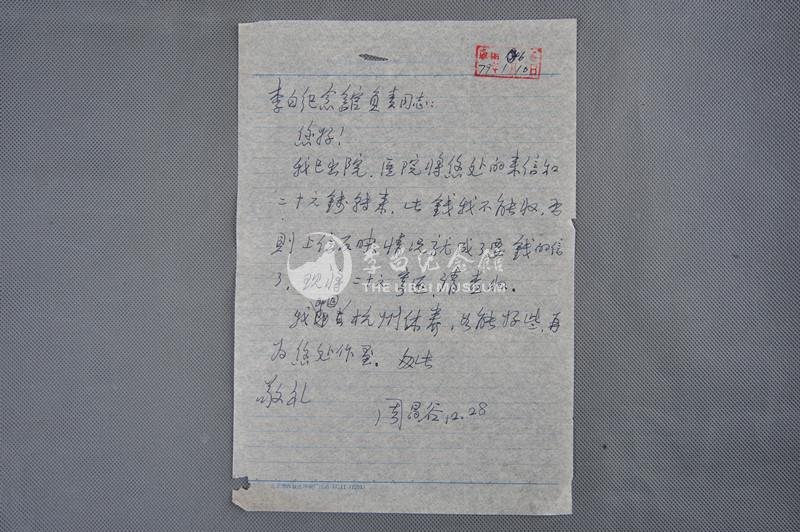 79年1月10日
李白纪念館負责同志:
您好!
我已出院,医院将您处的来信和
二十六錢转来,此錢我不能收,否
則上信反映情况就成了要錢的信
了,现将二十六寄还,请查收。
我即回杭州休养,如能好些,再
为您处作画。如此
敬礼
周昌谷 12.28
李白纪念館
THE LIBAI MUSEUM